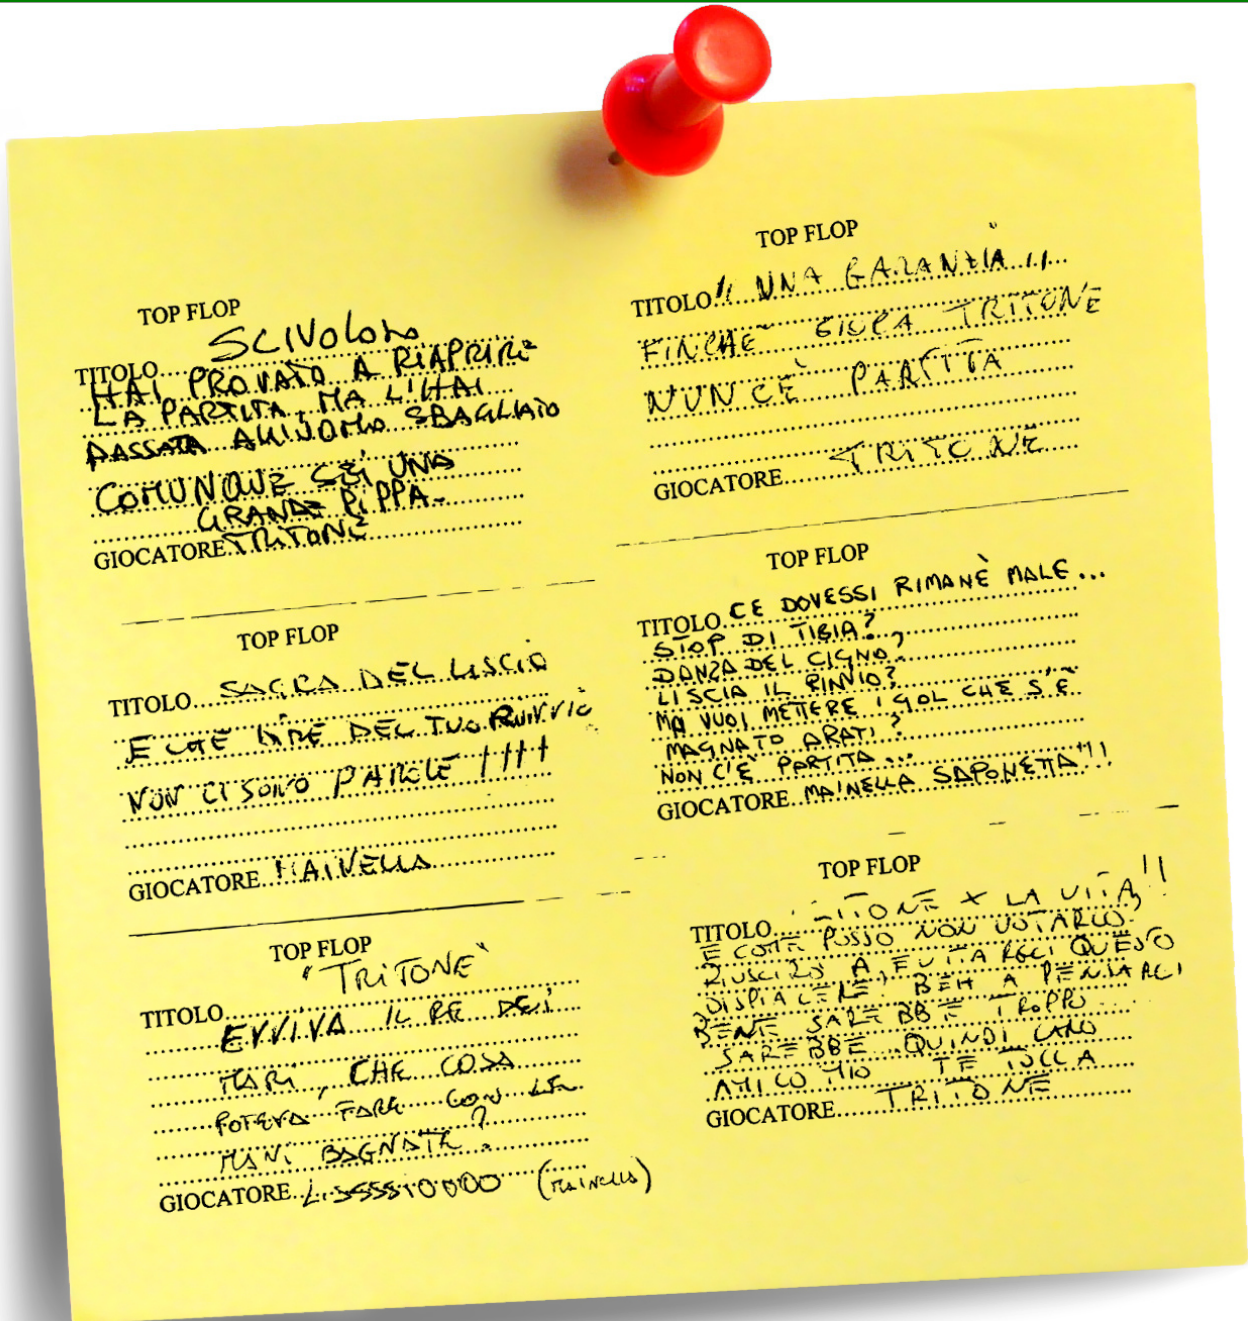 TOP FLOP
TITOLO... SCIVOLONO
HAI PROVATO A RIAPRIRE
LA PARTITA, MA L'HAI
PASSATA ALL'UOMO SBAGLIATO
COMUNQUE SEI UNA
GRANDE PIPPA.
GIOCATORE TRITONE
TOP FLOP
TITOLO... SAGRA DEL LISCIO
E CHE DIRE DEL TUO RINVIO
NON CI SONO PAROLE !!!!
GIOCATORE... MAINELLA
TOP FLOP
"TRITONE"
TITOLO...
EVVIVA IL RE DEI
MARI, CHE COSA
POTEVA FARE CON LE
MANI BAGNATE?
GIOCATORE... LISSSSIOOOO (MAINELLA)
TOP FLOP
TITOLO "UNA GARANZIA"
FINCHE GIOCA TRITONE
NUN CÈ PARTITA
GIOCATORE... TRITONE
TOP FLOP
TITOLO. CE DOVESSI RIMANÈ MALE...
STOP DI TIBIA?
DANZA DEL CIGNO,
LISCIA IL RINVIO?
MA VUOI METTERE I GOL CHE S'È
MAGNATO ARATI?
NON C'È PARTITA...
GIOCATORE. MAINELLA SAPONETTA!!!
TOP FLOP
TITOLO... X LA VITA!!
E COME POSSO NON VOTARLO.
RIUSCIRÒ A EVITARGLI QUESTO
DISPIACERE? BEH A PENSARCI
BENE SAREBBE TROPPO...
SAREBBE... QUINDI CARO
AMICO MIO TE TOCCA
GIOCATORE... TRITONE